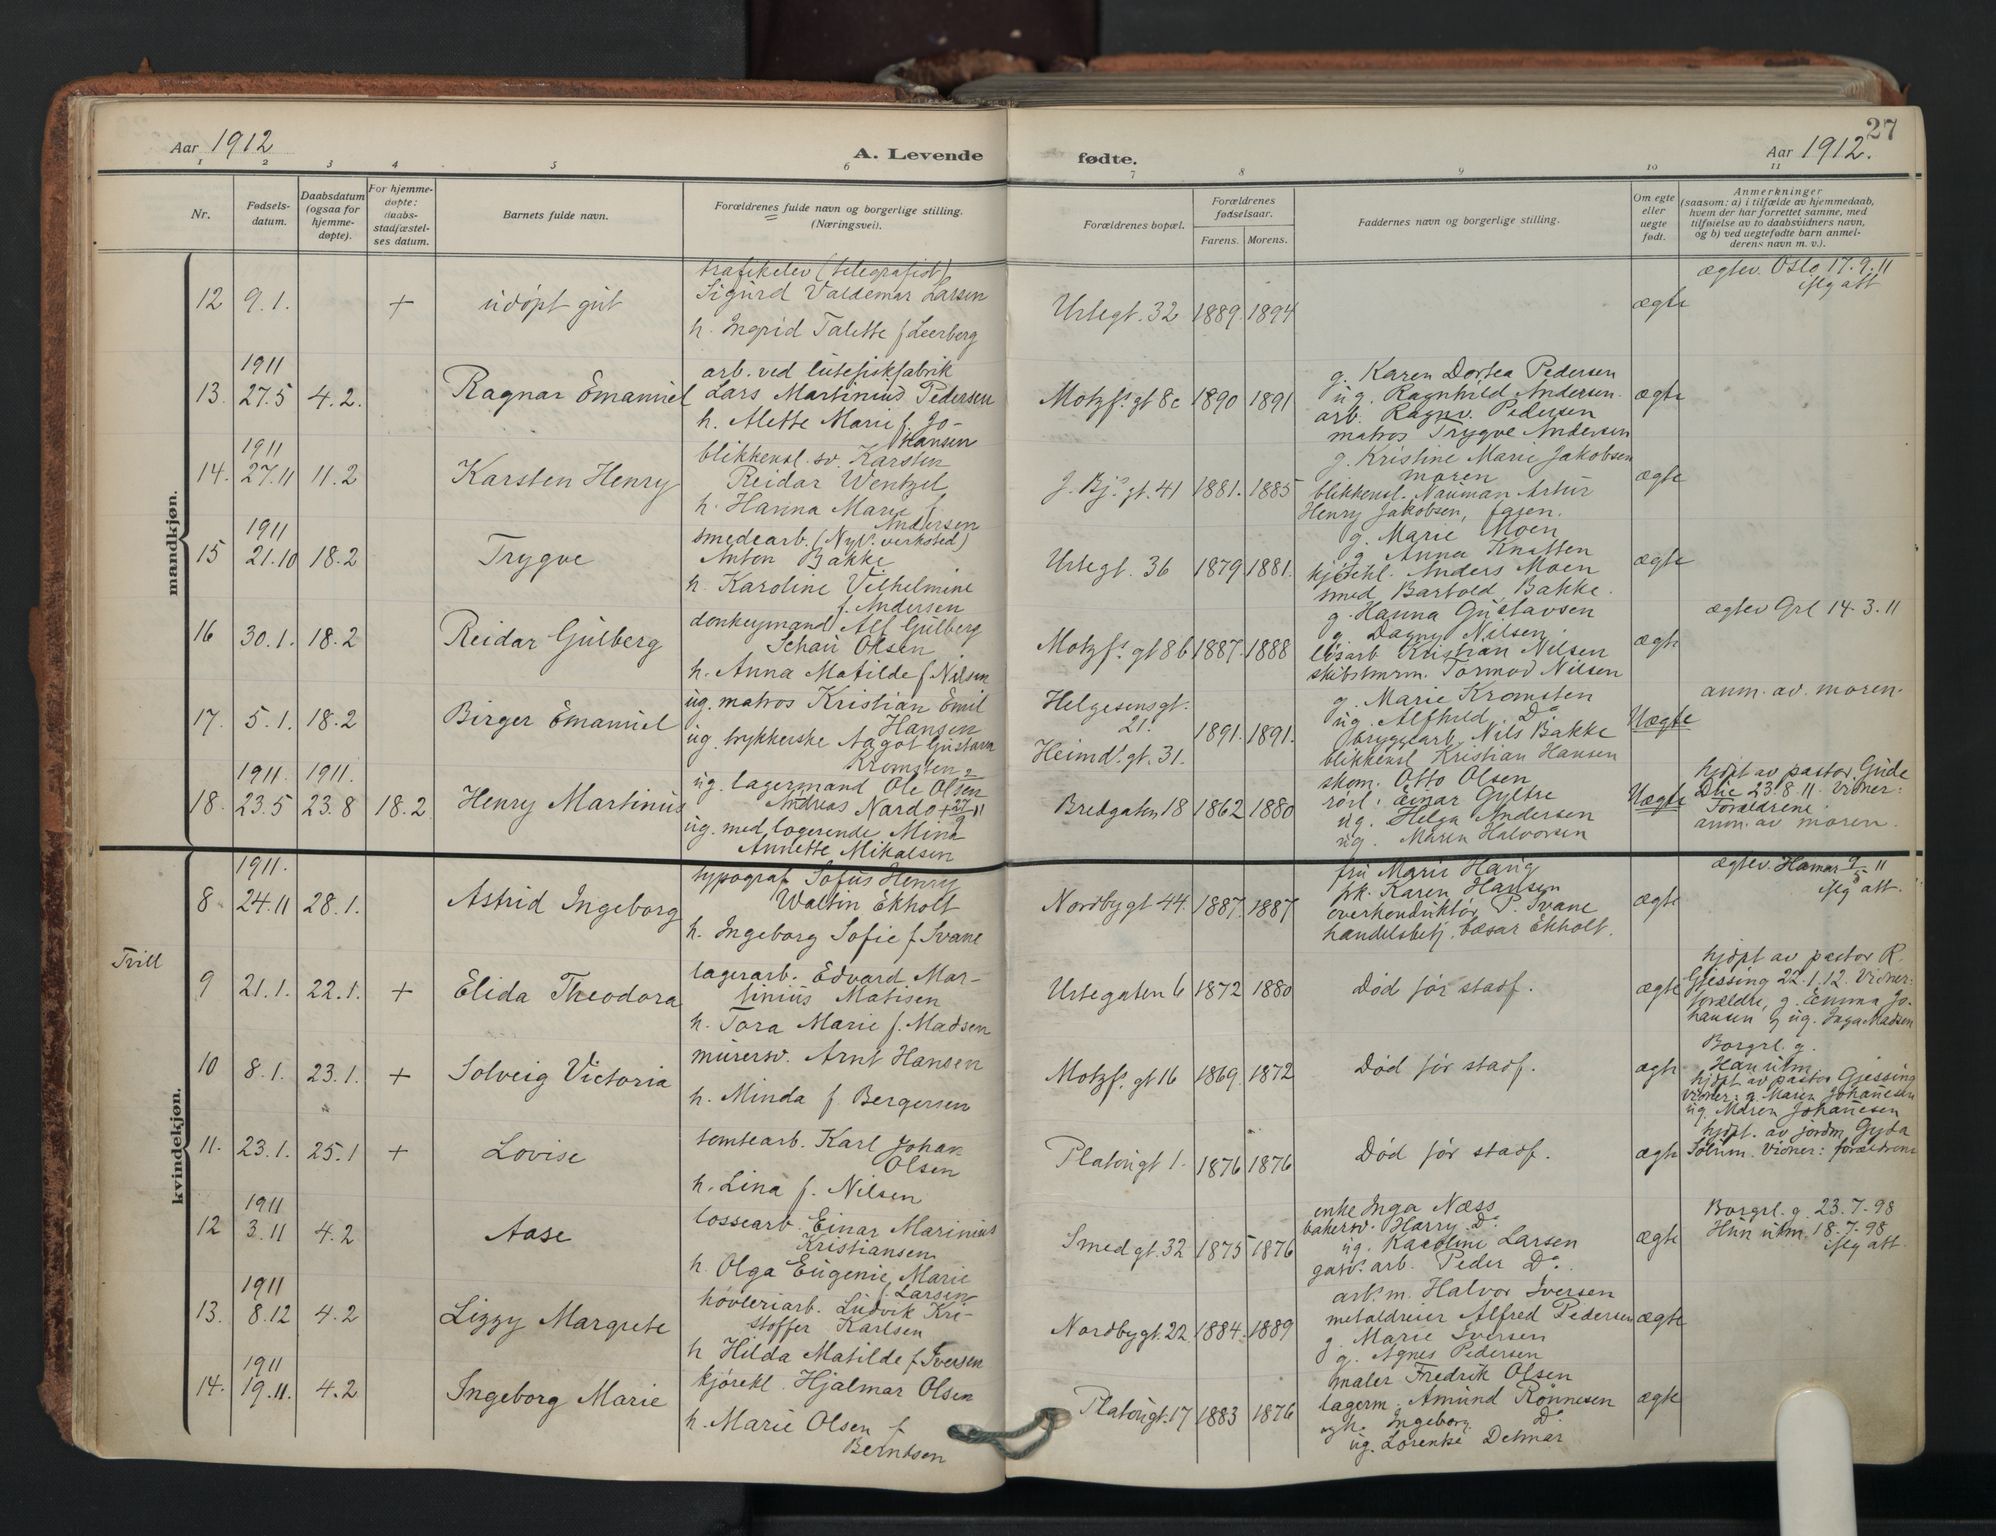 Aar 1912
A. Levende fødte.
Aar 1912.
27
1 2 3 4 5 6 7 8 9 10 11
Nr.
Fødsels-
datum.
Daabsdatum
(ogsaa for
hjemme-
døpte).
For hjemme-
døpte:
daabs-
stadfæstel-
ses datum.
Barnets fulde navn.
Forældrenes fulde navn og borgerlige stilling.
(Næringsvei).
Forældrenes bopæl.
Forældrenes
fødselsaar.
Farens. Morens.
Faddernes navn og borgerlige stilling.
Om egte
eller
uegte
født.
Anmerkninger
(saasom: a) i tilfælde av hjemmedaab,
hvem der har forrettet samme, med
tilføielse av to daabsvidners navn,
og b) ved uegtefødte barn anmel-
derens navn m. v.).
mandkjøn.
12 9.1. + udøpt gut
trafikelev (telegrafist)
Sigurd Valdemar Larsen
h. Ingrid Talette f. Leerberg
Urtegt. 32 1889. 1894
ægte
ægtev. Oslo 17.9.11
iflg att
1911
13. 27.5 4.2. Ragnar Emanuel
arb. ved lutefiskfabrik
Lars Martinius Pedersen
h. Alette Marie f. Jo-
hansen
Motzfs. gt 8c 1890 1891
g. Karen Dortea Pedersen
ug. Ragnhild Andersen.
arb. Ragnv. Pedersen
matros Trygve Andersen
ægte
1911
14. 27.11 11.2 Karsten Henry
blikkensl. sv. Karsten
Reidar Wentzel
h. Hanna Marie f.
Andersen
J. Bjs. gt. 41 1881. 1885
g. Kristine Marie Jakobsen
moren
blikkensl. Nauman Artur
Henry Jakobsen, faren.
ægte
1911
15 21.10 18.2 Trygve
smedearb. (Nyl. verksted)
Anton Bakke
h. Karoline Vilhelmine
f. Andersen
Urtegt. 36 1879 1881.
g. Marie Moen
g. Anna Knatten
kjørekl. Anders Moen
smed Bartold Bakke.
ægte
16 30.1. 18.2 Reidar Gulberg
donkeymand Alf Gulberg
Schau Olsen
h. Anna Matilde f. Nilsen
Motzfs. gt 8b 1887. 1888
g. Hanna Gustavsen
g. Dagny Nilsen.
løsarb Kristian Nilsen
skibstmrm. Tormod Nilsen
ægte
ægtev Grl 14.3.11
17. 5.1. 18.2 Birger Emanuel
ug. matros Kristian Emil
Hansen
ug. trykkerske Aagot Gustava
Kromsten
Helgesensgt.
21.
Heimds. gt. 31.
1891. 1891.
g. Marie Kromsten
ug. Alfhild Do.
bryggearb. Nils Bakke
blikkensl Kristian Hansen
Uægte
anm. av moren.
1911. 1911.
18. 23.5 23.8 18.2. Henry Martinus
ug. lagermand Ole Olsen
Andreas Nardo + 27/9 11
ug. med logerende Mina
Annette Mikalsen
Bredgaten 18 1862 1880
skom. Otto Olsen
rørl. Einar Gyltre
ug. Helga Andersen
ug. Maren Halvorsen
Uægte
hjdpt av pastor Gude
Die 23.8.11 Vidner:
Forældrene.
anm. av moren.
kvindekjøn.
1911.
8 24.11 28.1. Astrid Ingeborg
typograf Sofus Henry
Waltin Ekholt
h. Ingeborg Sofie f. Svane
Nordbygt 44. 1887. 1887
fru Marie Haug
frk. Karen Hansen
overkonduktør P. Svane
handelsbetj. Cæsar Ekholt.
ægte
ægtev Hamar 9/5 11
iflg att.
Tvill
9 21.1. 22.1. + Elida Theodora
lagerarb. Edvard Mar-
tinius Matisen
h. Tora Marie f. Madsen
Urtegaten 6 1872 1880
Død før stadf.
ægte
hjdpt av pastor R.
Gjessing 22.1.12. Vidner:
forældre, g. Emma Jo-
hansen og ug. Inga Madsen
10 8.1. 23.1. + Solveig Victoria
murersv. Arnt Hansen
h. Minda f. Bergersen
Motzfs. gt 16 1869. 1872
Død før stadf.
ægte
Borgrl. g.
Han utm.
hjdpt av pastor Gjessing
Vidner: g. Maren Johannesen
ug. Maren Johannesen
11. 23.1. 25.1 + Lovise
tomtearb. Karl Johan
Olsen
h. Lina f. Nilsen
Platougt 1. 1876 1876
Død før stadf.
ægte
hjdpt. av jordm Gyda
Solum. Vidner: forældrene
1911
12 3.11 4.2 Aase
lossearb. Einar Marinius
Kristiansen
h. Olga Eugenie Marie
f. Larsen
Smedgt. 32 1875 1876
enke Inga Næss
bakersv. Harry Do.
ug. Karoline Larsen
gasv. arb. Peder Do.
ægte
Borgrl. g. 23.7-98
Hun utm. 18.7-98
iflg att.
1911
13. 8.12 4.2 Lizzy Margrete
høvleriarb. Ludvik Kri-
stoffer Karlsen
h Hilda Matilde f. Iversen
Nordbygt. 22 1884. 1889
arb. m. Halvor Iversen
metaldreier Alfred Pedersen
g Marie Iversen
g. Agnes Pedersen
ægte
1911
14. 19.11. 4.2 Ingeborg Marie
kjørekl. Hjalmar Olsen
h. Marie Olsen f
Berntsen
Platougt. 17 1883 1876
maler Fredrik Olsen
lagerm. Amund Rønnesen
Ingeborg Do.
ug. Lorentse Detmar
ægte